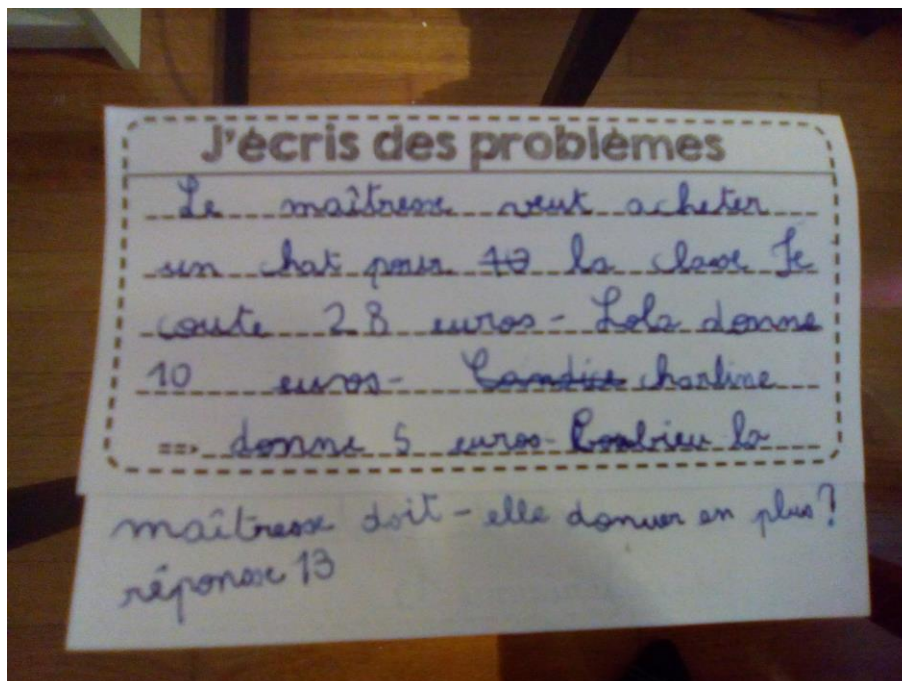 J'écris des problèmes
Le maîtresse veut acheter
un chat pour 10 la classe Je
coute 28 euros - Lola donne
10 euros - Candice charline
==> donne 5 euros - Combieu la
maîtresse doit - elle donner en plus?
réponse 13